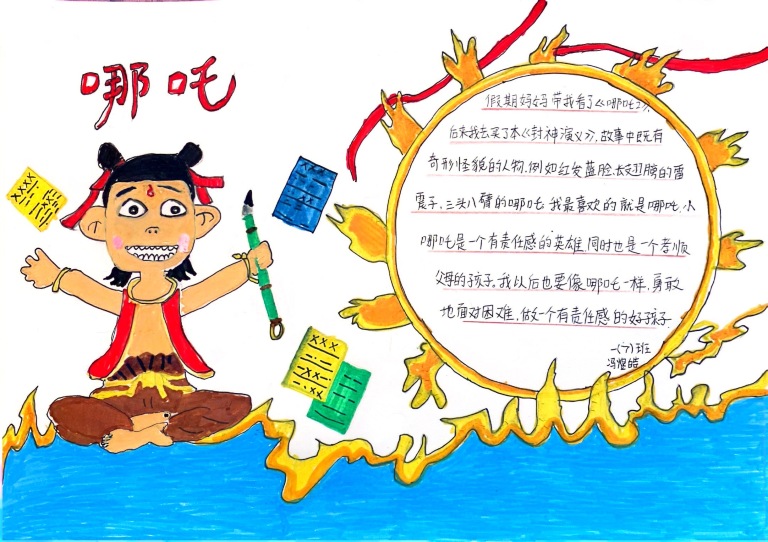 哪吒
假期妈妈带我看了《哪吒》,
后来我去买了本《封神演义》,故事中既有
奇形怪貌的人物,例如红发蓝脸、长翅膀的雷
震子,三头八臂的哪吒,我最喜欢的就是哪吒,小
哪吒是一个有责任感的英雄,同时也是一个孝顺
父母的孩子,我以后也要像哪吒一样,勇敢
地面对困难,做一个有责任感的好孩子.
一(六)班
冯煜皓